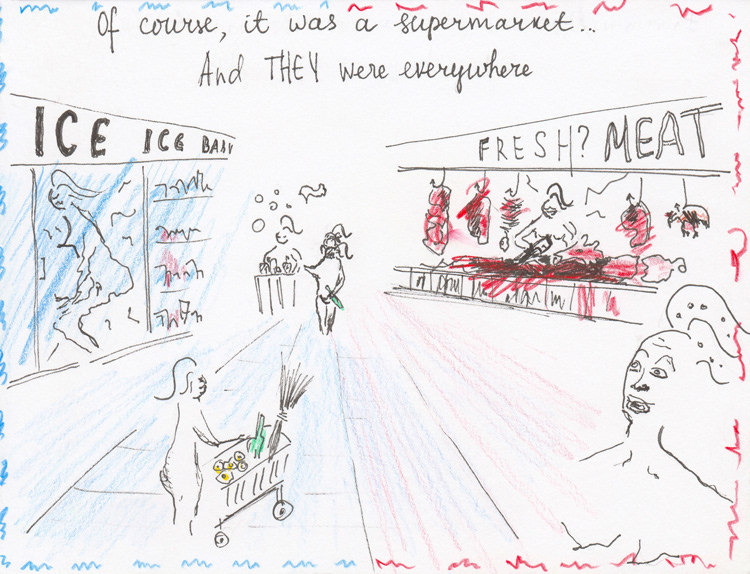 Of course, it was a supermarket...
And THEY were everywhere
ICE ICE BABY
FRESH? MEAT